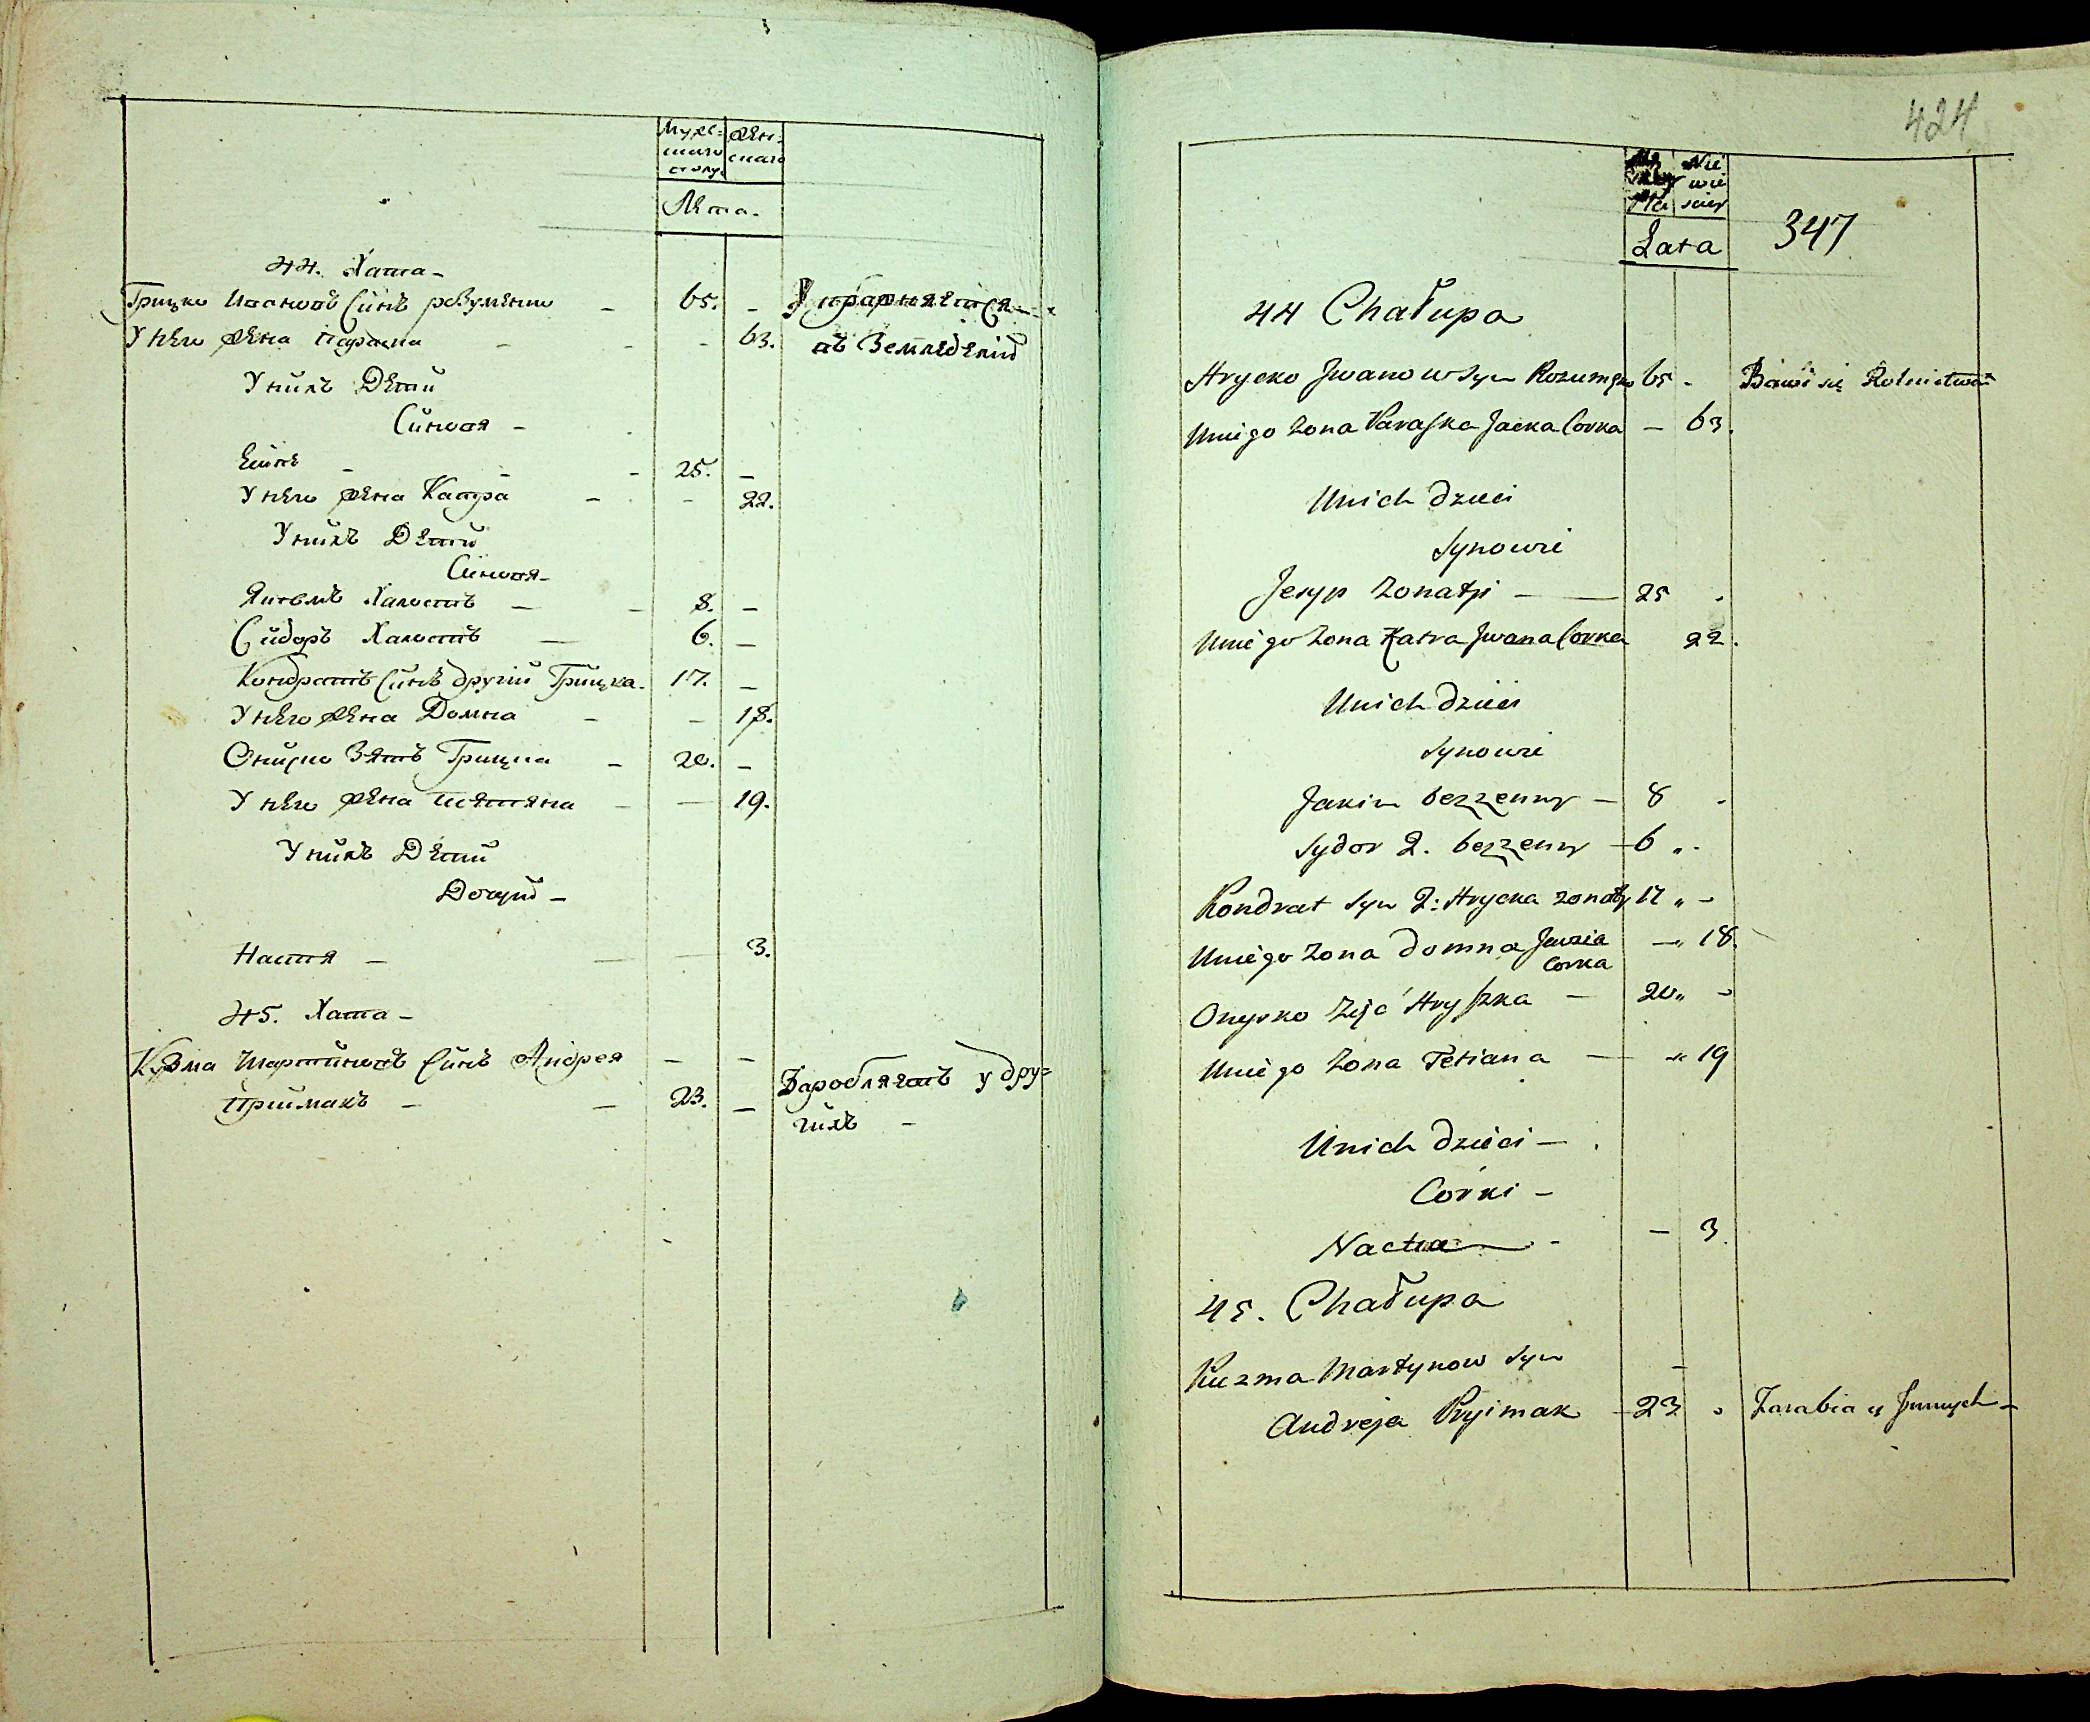 Муже-
скаго
полу.
Жен-
скаго
Лета.
44. Хата -
Грицко Ивановъ Синъ розуменко - 65. -
Упражняется
въ Земледелій
У него жена параска - - - 63.
У нихъ Дети
Синовя -
Есипъ - - - 25. -
У него жена Катра - - 22.
У нихъ Дети
Синовя -
Якимъ Халостъ - - 8. -
Сидоръ Халостъ - 6. -
Кондратъ Синъ другій Грицка. 17. -
У него жена Домна - - 18.
Ониско Зять Грицка - 20. -
У него жена тетяна - - 19.
У нихъ Дети
Дочери -
Настя - - - 3.
45. Хата -
Кузма Мартиновъ Синъ Андрея - -
Приймакъ - - 23. -
Заробляетъ у дру-
гихъ -
424
Nie
wie
sciey
Lata
347
44 Chałupa
Hrycko Jwanow Syn Rozumenko 65 - Bawi się Rolnictwem
Uniego Zona Paraska Jacka Corka - 63.
Unich dzieci
Synowie
Jesyp Zonaty - - 25 -
Uniego Zona Katra Jwana Corka 22.
Unich dzieci
Synowie
Jakim bezzenny - 8 -
Sydor 2. bezzenny - 6 " -
Kondrat Syn 2: Hrycka zonaty 17 " -
Uniego Zona Domna
Corka - " 18.
Onysko Zięć Hryszka - 20 " -
Uniego Zona Tetiana - " 19
Unich dzieci -
Corki -
Nastia - - 3.
45. Chałupa
Kuzma Martynow Syn -
Andreja Pryimak - 23 - Zarabia u Jnnych -